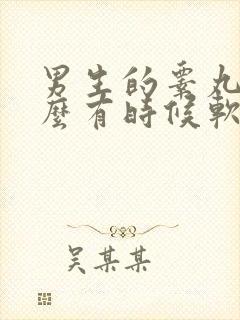 男生的睪丸
麼有時候軟
吳某某